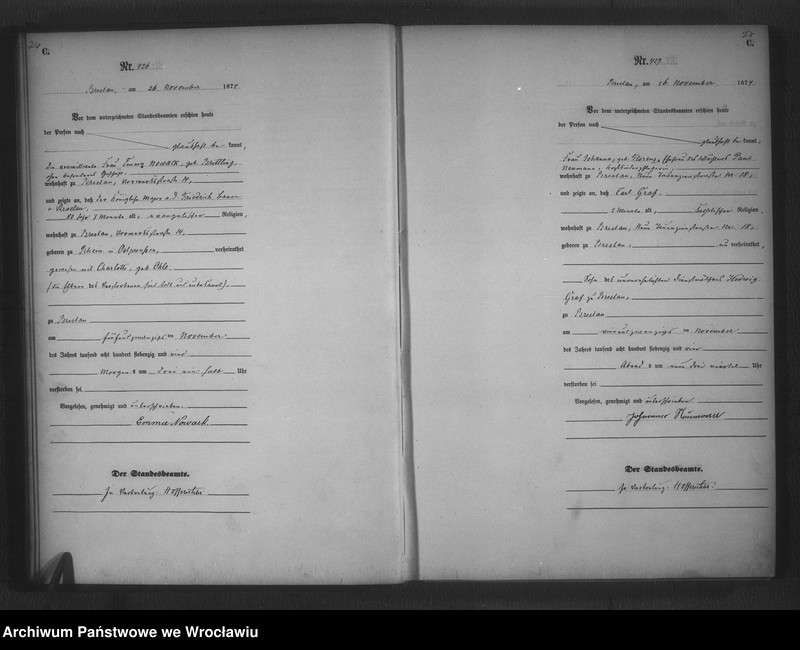 C.
Nr. 426
Breslau, am 26 November 1874
Vor dem unterzeichneten Standesbeamten erschien heute
der Person nach
glaubhaft bekannt,
Frau Emma Nowack, geb.
wohnhaft zu Breslau, Vorwerksstraße 14,
und zeigte an, daß der Königliche Major a. D. Friedrich
Breslau,
80 Jahr 7 Monate alt, evangelischer Religion,
wohnhaft zu Breslau, Vorwerksstraße 14,
geboren zu in Ostpreußen, verheirathet
gewesen mit Charlotte, geb.
(die Eltern des Verstorbenen sind todt und unbekannt),
zu Breslau
am fünfundzwanzigsten November
des Jahres tausend acht hundert siebenzig und vier
Morgens um drei ein halb Uhr
verstorben sei.
Vorgelesen, genehmigt und unterschrieben
Emma Nowack.
Der Standesbeamte.
In Vertretung
C.
Nr.
Breslau, am 26 November 1874
Vor dem unterzeichneten Standesbeamten erschien heute
der Person nach
glaubhaft bekannt,
Frau Johanna, geb. Ehefrau des Paul
Neumann,
wohnhaft zu Breslau, Neue Tauenzienstraße Nr. 18
und zeigte an, daß Carl Graf,
2 Monate alt, Religion,
wohnhaft zu Breslau, Neue Tauenzienstraße Nr. 18
geboren zu Breslau, verheirathet,
Sohn des unverehelichten Dienstmädchens Hedwig
Graf zu Breslau,
zu Breslau
am vierundzwanzigsten November
des Jahres tausend acht hundert siebenzig und vier
Abends um neun drei viertel Uhr
verstorben sei.
Vorgelesen, genehmigt und unterschrieben
Johanna Neumann
Der Standesbeamte.
In Vertretung
Archiwum Państwowe we Wrocławiu